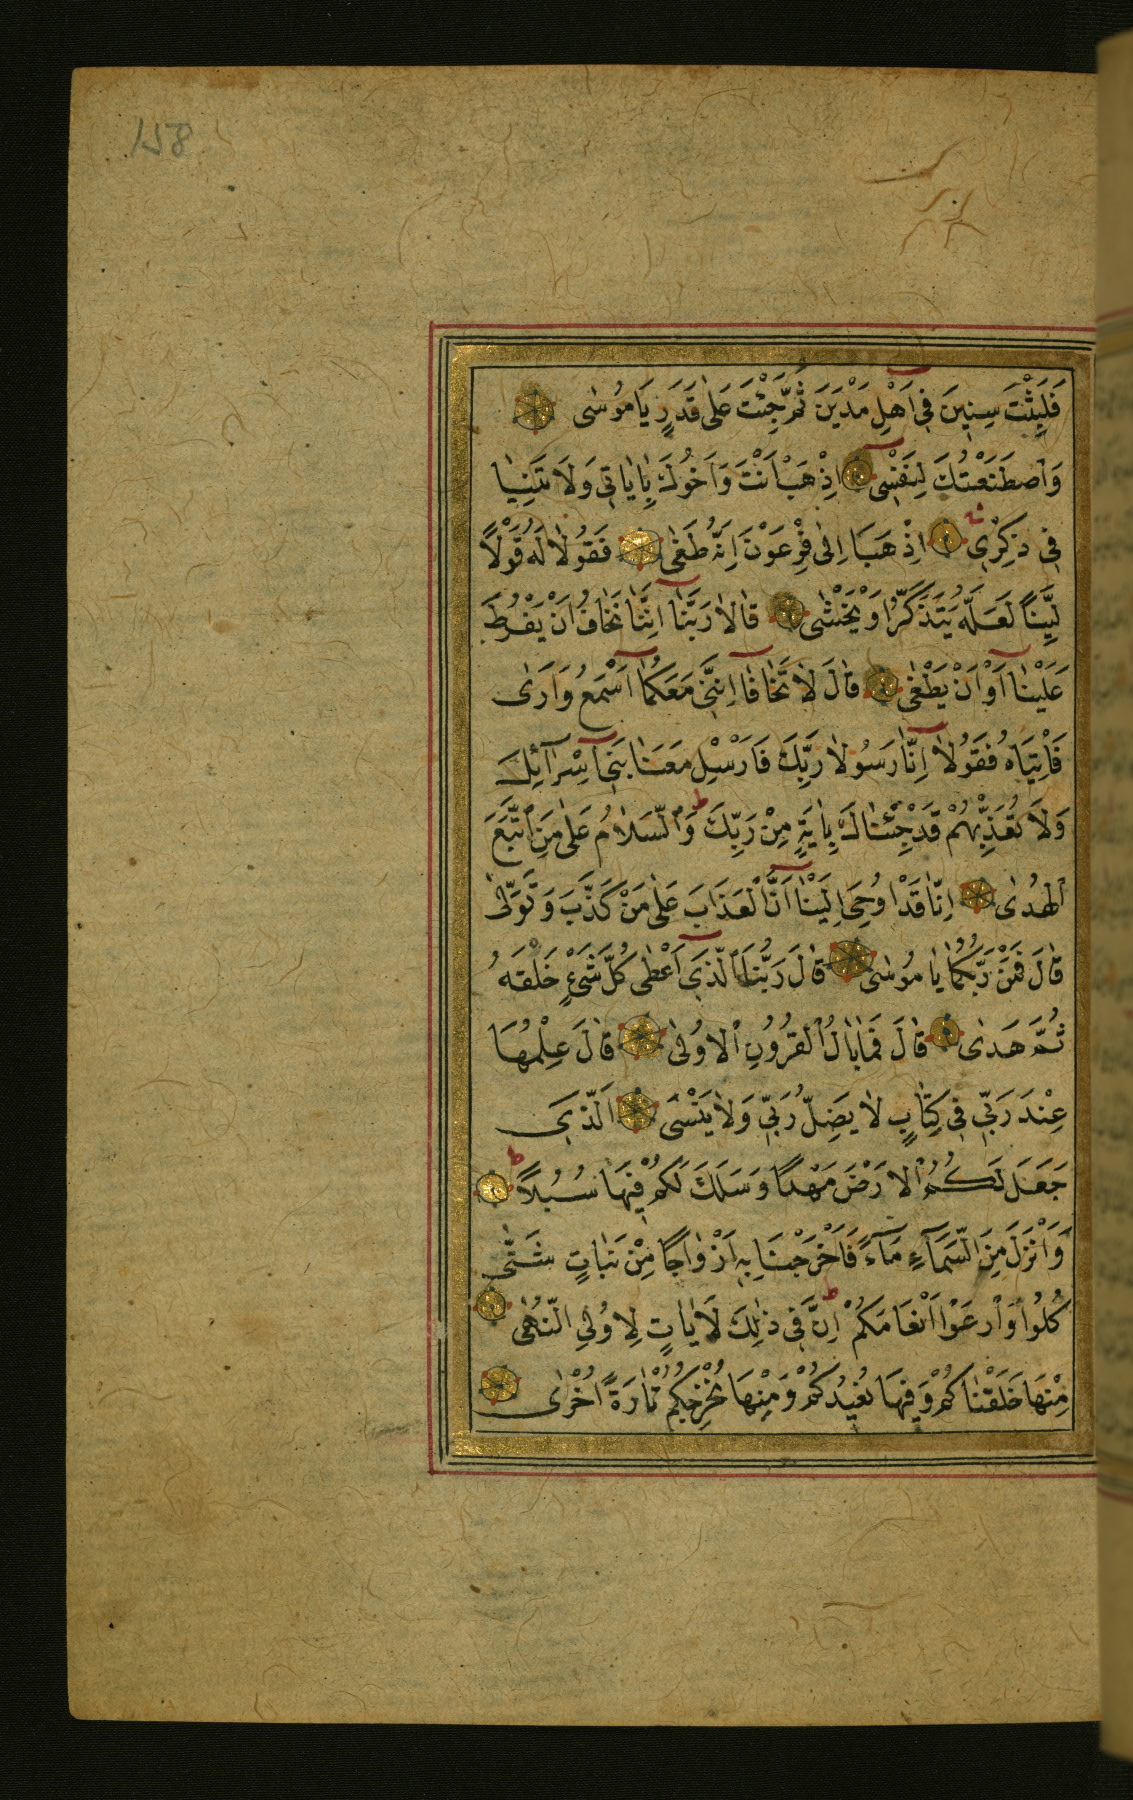 158
فَلَبِثْتَ سِنِينَ فِي اَهْلِ مَدْيَنَ ثُمَّ جِئْتَ عَلٰى قَدَرٍ يَا مُوسٰى
وَاصْطَنَعْتُكَ لِنَفْسِى اِذْهَبْ اَنْتَ وَاَخُوكَ بِاٰيَاتِى وَلَا تَنِيَا
فِى ذِكْرِى اِذْهَبَا اِلٰى فِرْعَوْنَ اِنَّهُ طَغٰى فَقُولَا لَهُ قَوْلًا
لَيِّنًا لَعَلَّهُ يَتَذَكَّرُ اَوْ يَخْشٰى قَالَا رَبَّنَا اِنَّنَا نَخَافُ اَنْ يَفْرُطَ
عَلَيْنَا اَوْ اَنْ يَطْغٰى قَالَ لَا تَخَافَا اِنَّنِى مَعَكُمَا اَسْمَعُ وَاَرٰى
فَاْتِيَاهُ فَقُولَا اِنَّا رَسُولَا رَبِّكَ فَاَرْسِلْ مَعَنَا بَنِى اِسْرَآئِلَ
وَلَا تُعَذِّبْهُمْ قَدْ جِئْنَاكَ بِاٰيَةٍ مِنْ رَبِّكَ ط وَالسَّلَامُ عَلٰى مَنِ اتَّبَعَ
الْهُدٰى اِنَّا قَدْ اُوحِىَ اِلَيْنَا اَنَّ الْعَذَابَ عَلٰى مَنْ كَذَّبَ وَتَوَلّٰى
قَالَ فَمَنْ رَبُّكُمَا يَا مُوسٰى قَالَ رَبُّنَا الَّذِى اَعْطٰى كُلَّ شَىْءٍ خَلْقَهُ
ثُمَّ هَدٰى قَالَ فَمَا بَالُ الْقُرُونِ الْاُولٰى قَالَ عِلْمُهَا
عِنْدَ رَبِّى فِى كِتَابٍ لَا يَضِلُّ رَبِّى وَلَا يَنْسٰى اَلَّذِى
جَعَلَ لَكُمُ الْاَرْضَ مَهْدًا وَسَلَكَ لَكُمْ فِيهَا سُبُلًا ط
وَاَنْزَلَ مِنَ السَّمَآءِ مَآءً فَاَخْرَجْنَا بِهِ اَزْوَاجًا مِنْ نَبَاتٍ شَتّٰى
كُلُوا وَارْعَوْا اَنْعَامَكُمْ ط اِنَّ فِى ذٰلِكَ لَاٰيَاتٍ لِاُولِى النُّهٰى
مِنْهَا خَلَقْنَاكُمْ وَفِيهَا نُعِيدُكُمْ وَمِنْهَا نُخْرِجُكُمْ تَارَةً اُخْرٰى